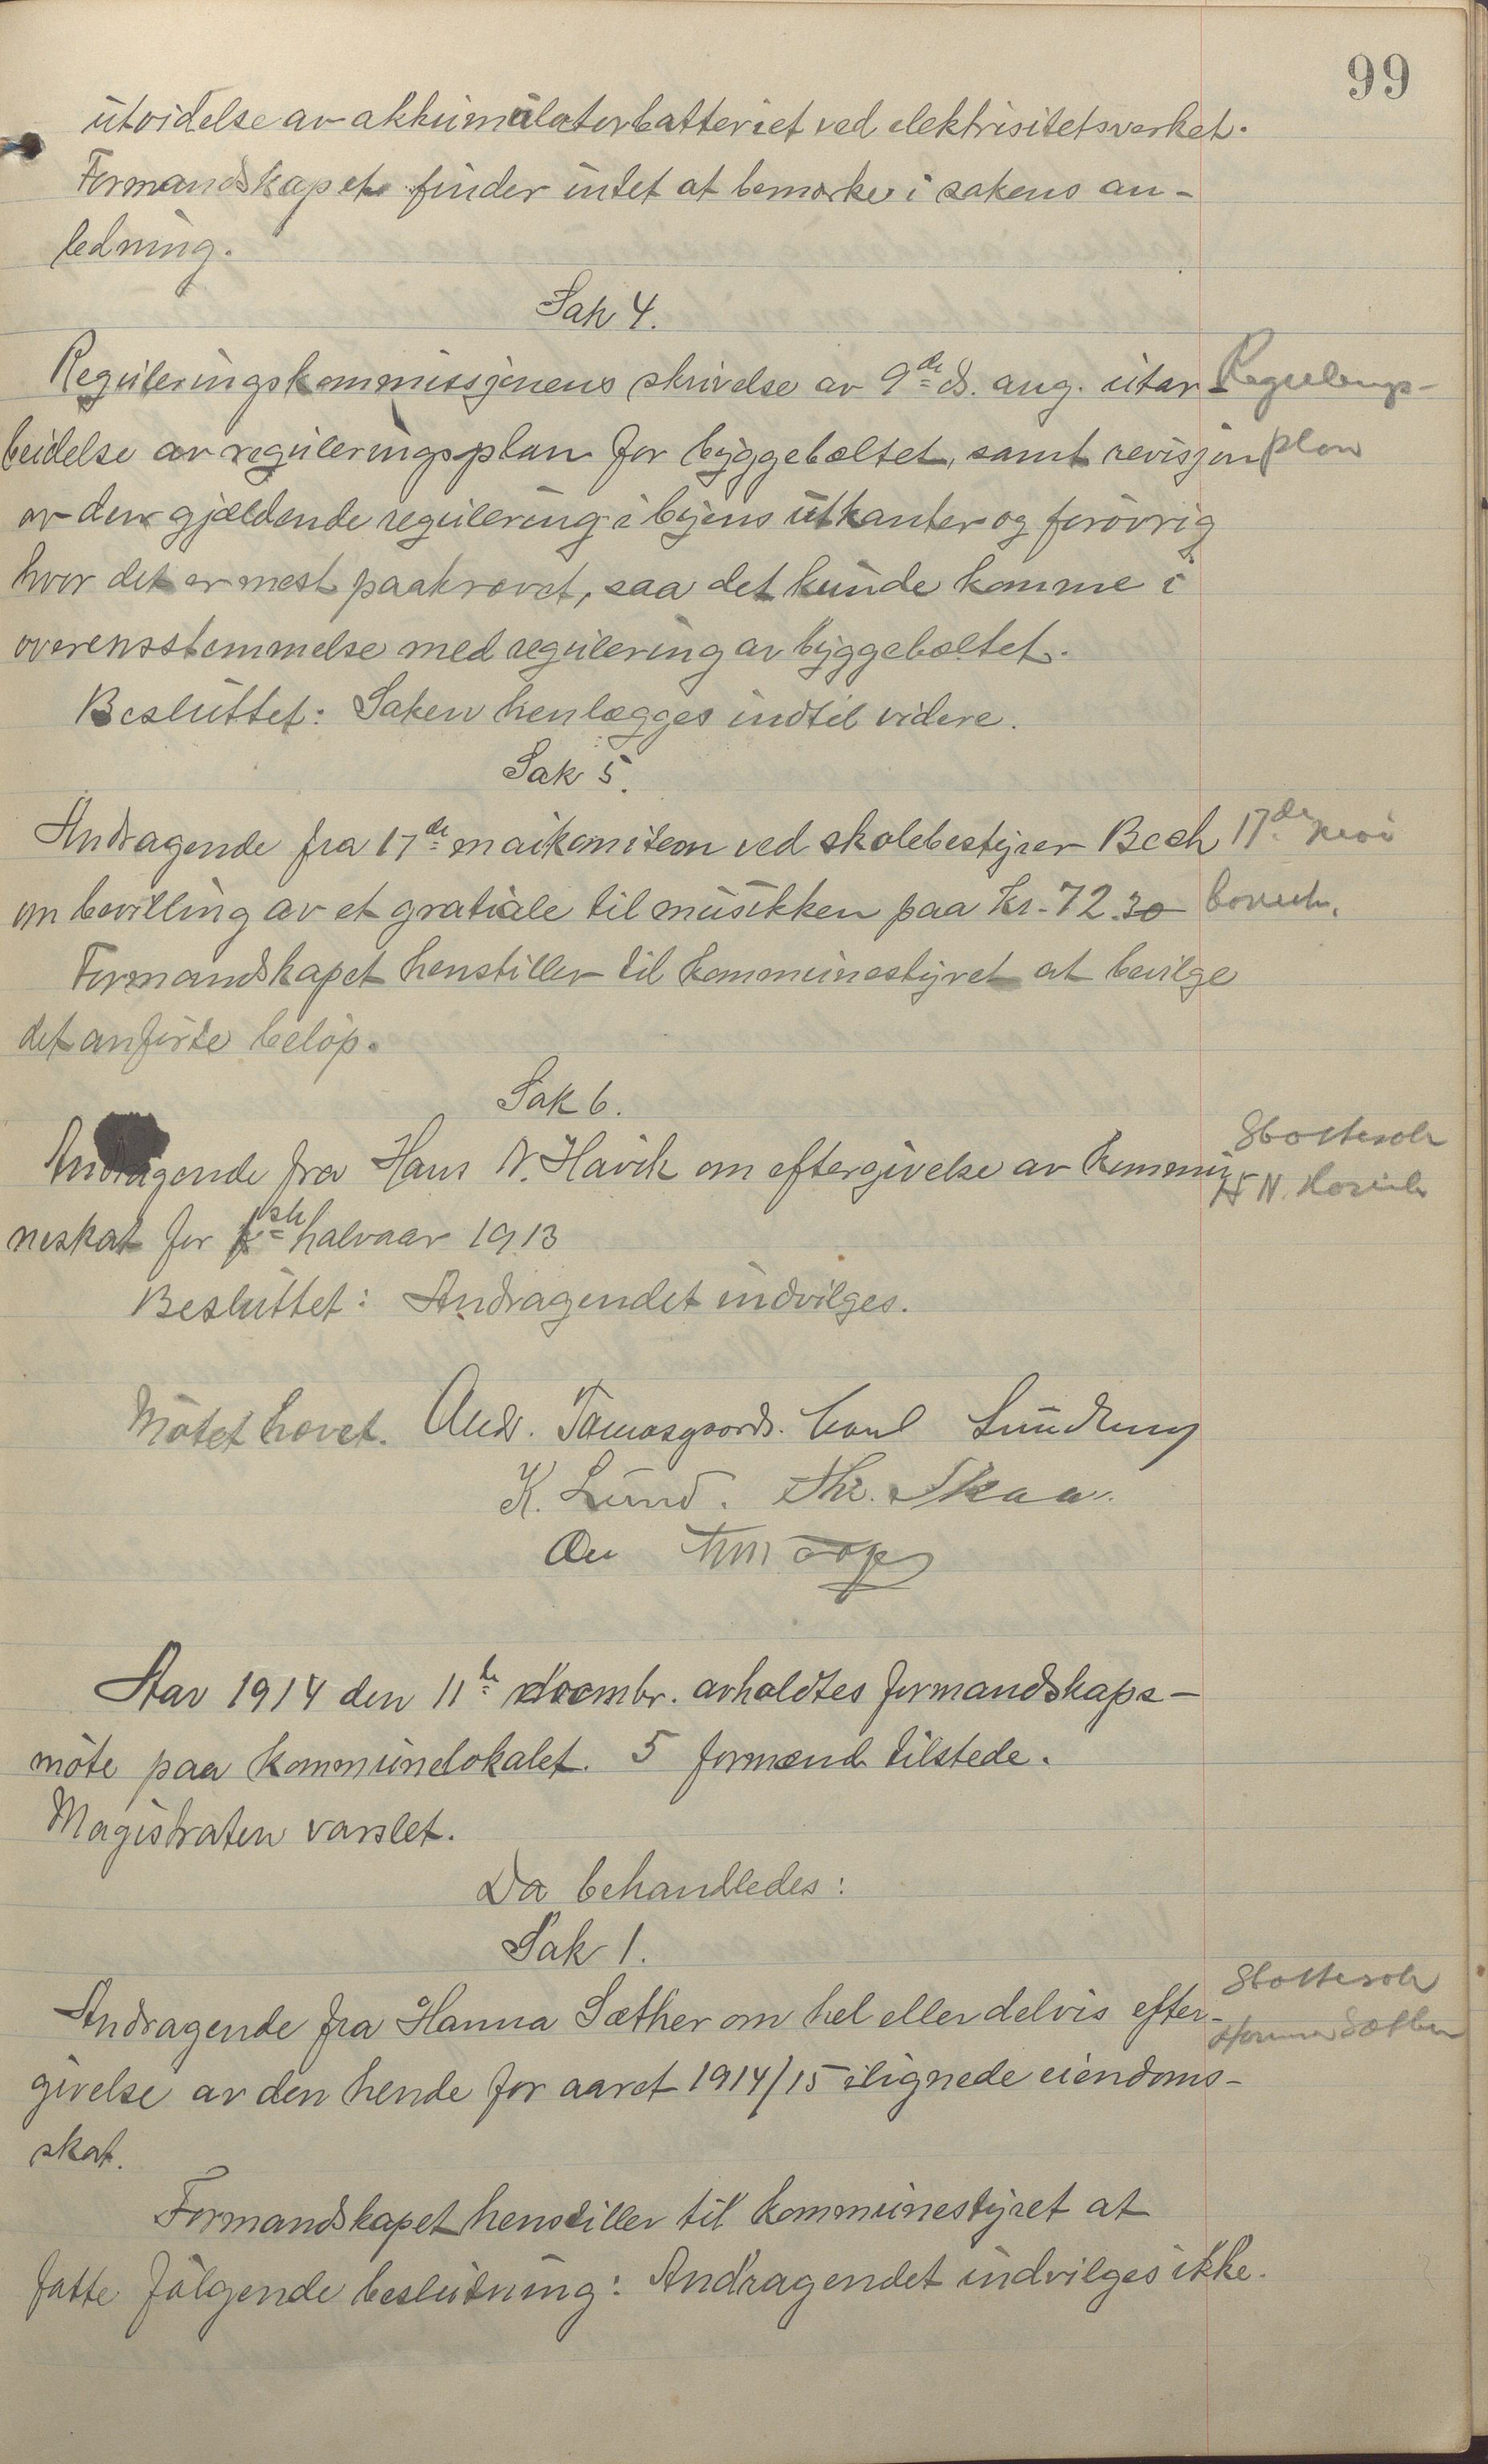 99
utvidelse av akkumulatorbatteriet ved elektrisitetsverket.
Formandskapet finder intet at bemærke i sakens an-
ledning.
Sak 4.
Reguleringskommissjonens skrivelse av 9de ds. ang. utar-
beidelse av reguleringsplan for byggebæltet, samt revisjon
av den gjældende regulering i byens utkanter og forøvrig
hvor det er mest paakrævet, saa det kunde komme i
overensstemmelse med regulering av byggebæltet.
Regulerings-
plan
Besluttet: Saken henlægges indtil videre.
Sak 5.
Andragende fra 17de maikomiteen ved skolebestyrer Bech
om bevilling av et gratiale til musikken paa Kr. 72.30
17de mai
Formandskapet henstiller til kommunestyret at bevilge
det anførte beløp.
Sak 6.
Andragende fra Hans N. Havik om eftergivelse av kommu-
neskat for 1ste halvaar 1913
Skattesak
H N. Havik
Besluttet: Andragendet indvilges.
Møtet hævet. Andr. Tomasgaard. Carl Sundling
K. Lund. Chr. Skaar.
Aar 1914 den 11te novmbr. avholdtes formandskaps-
møte paa kommunelokalet. 5 formænd tilstede.
Magistraten varslet.
Da behandledes:
Sak 1.
Andragende fra Hanna Sæther om hel eller delvis efter-
givelse av den hende for aaret 1914/15 ilignede eiendoms-
skat.
Skattesak
Hanna Sæther
Formandskapet henstiller til kommunestyret at
fatte følgende beslutning: Andragendet indvilges ikke.